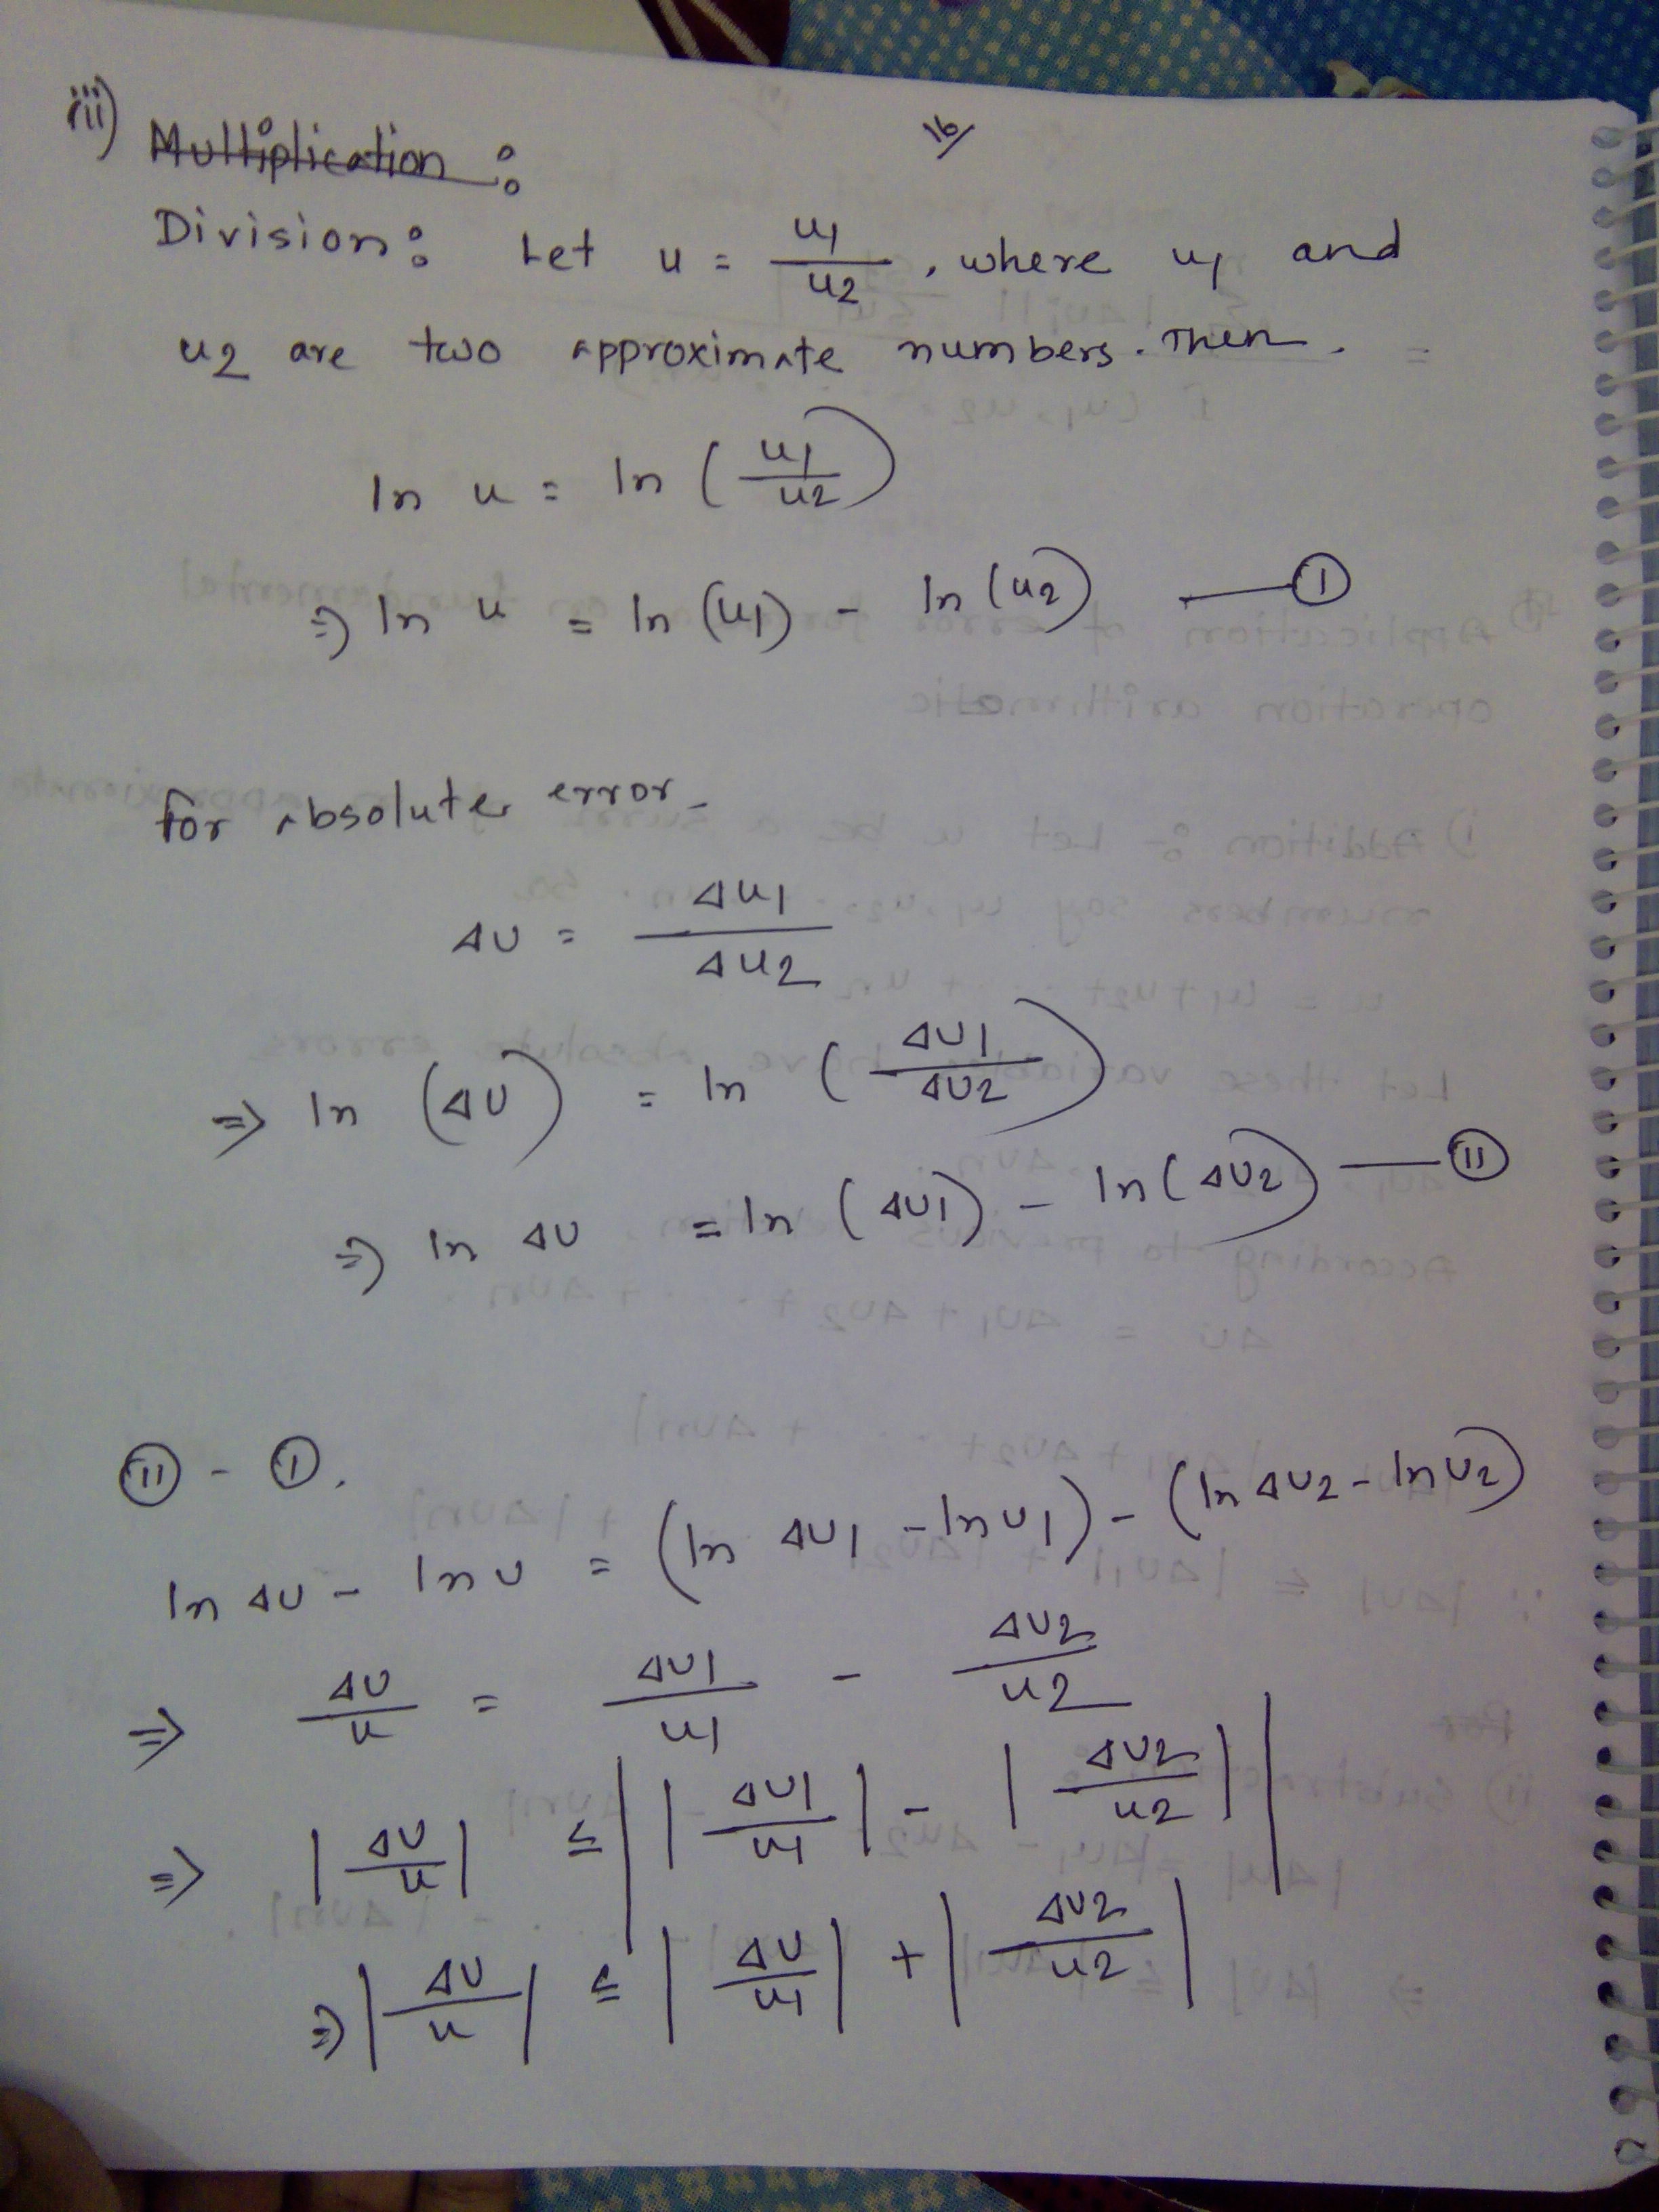 iii) Multiplication :
16/
Division: Let u = u1/u2, where u1 and
u2 are two approximate numbers. Then.
ln u = ln (u1/u2)
⇒ ln u = ln (u1) - ln (u2) —— (I)
for absolute error -
Δu = Δu1/Δu2
⇒ ln (Δu) = ln (Δu1/Δu2)
⇒ ln Δu = ln (Δu1) - ln (Δu2) —— (II)
(II) - (I).
ln Δu - ln u = (ln Δu1 - ln u1) - (ln Δu2 - ln u2)
⇒ Δu/u = Δu1/u1 - Δu2/u2
⇒ |Δu/u| ≤ ||Δu1/u1| - |Δu2/u2||
⇒ |Δu/u| ≤ |Δu/u1| + |Δu2/u2|